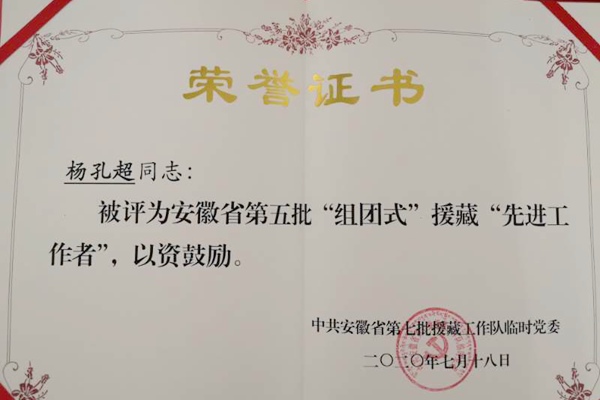 荣誉证书
杨孔超同志：
被评为安徽省第五批“组团式”援藏“先进工
作者”，以资鼓励。
中共安徽省第七批援藏工作队临时党委
二〇二〇年七月十八日